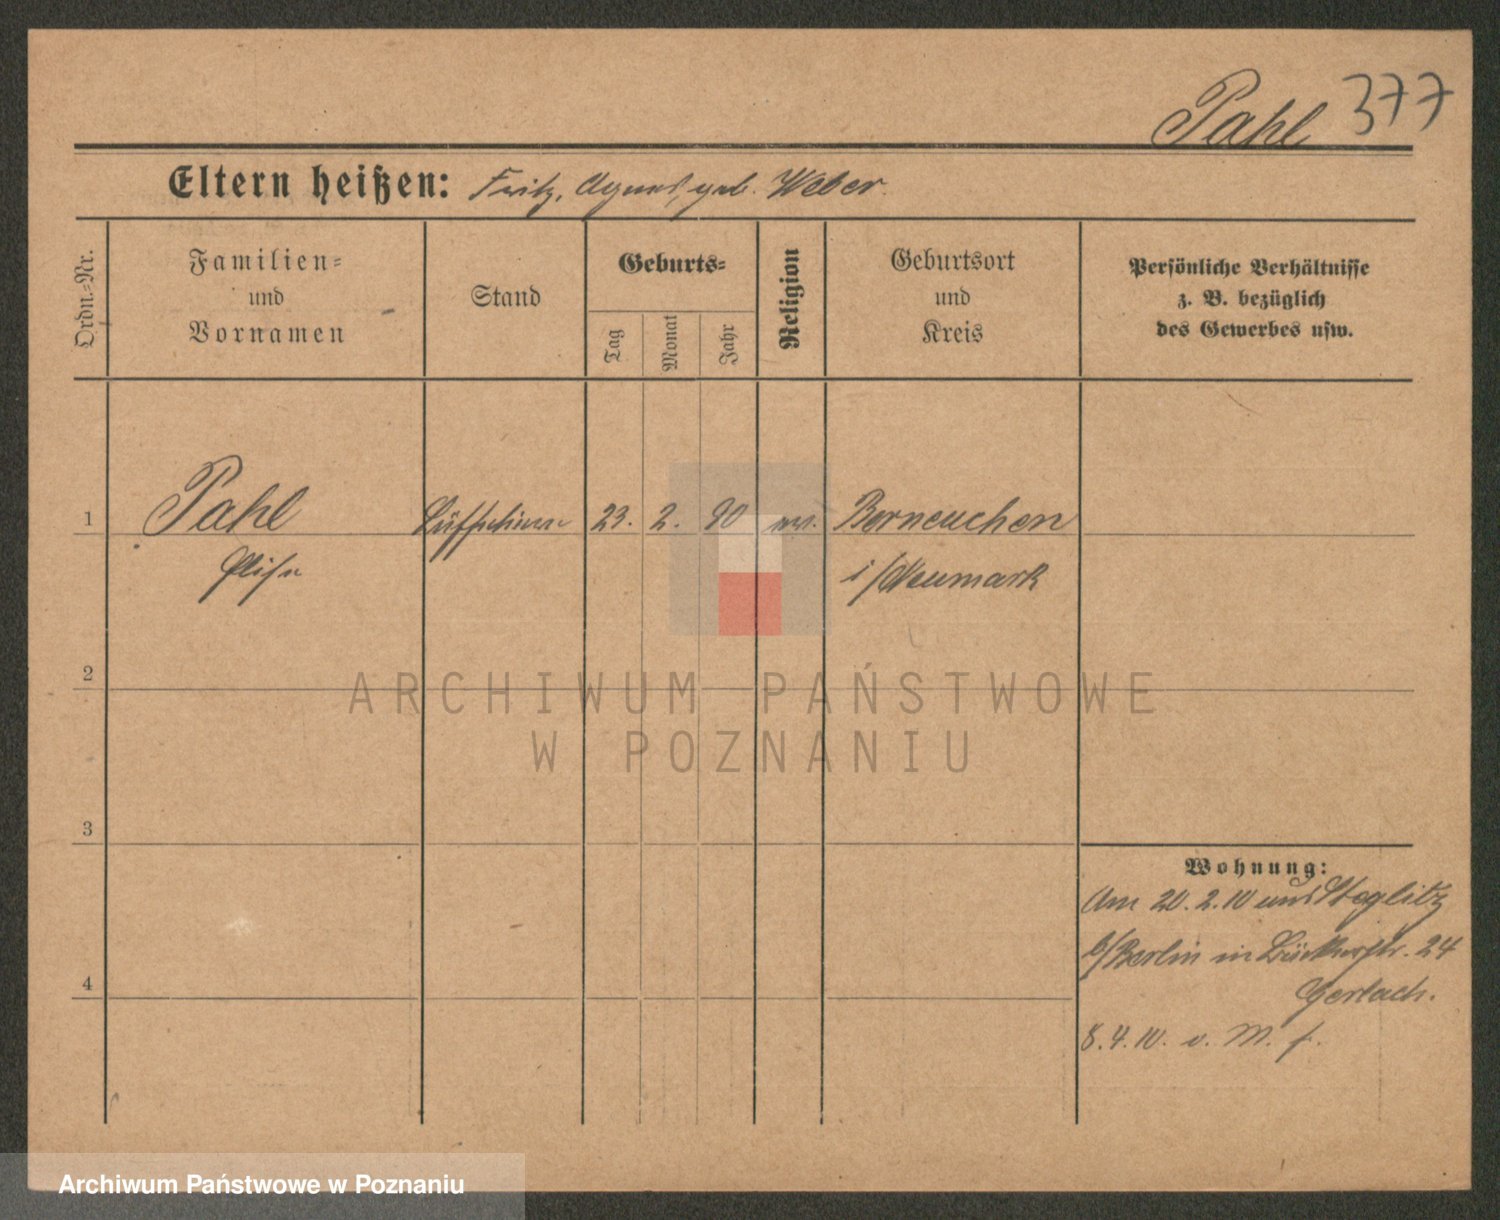 Pahl 377
Eltern heißen: Fritz, Agnes, geb. Weber.
Ordn.-Nr.
Familien-
und
Vornamen
Stand
Geburts-
Tag
Monat
Jahr
Religion
Geburtsort
und
Kreis
Persönliche Verhältnisse
z. B. bezüglich
des Gewerbes usw.
1 Pahl 23. 2. 90 ev. Berneuchen
Elise i/Neumark
2
3
4
Wohnung:
Am 20.2.10 nach Steglitz
b/Berlin in 24
Gerlach.
8.4.10. v. M. f.
ARCHIWUM PAŃSTWOWE
W POZNANIU
Archiwum Państwowe w Poznaniu